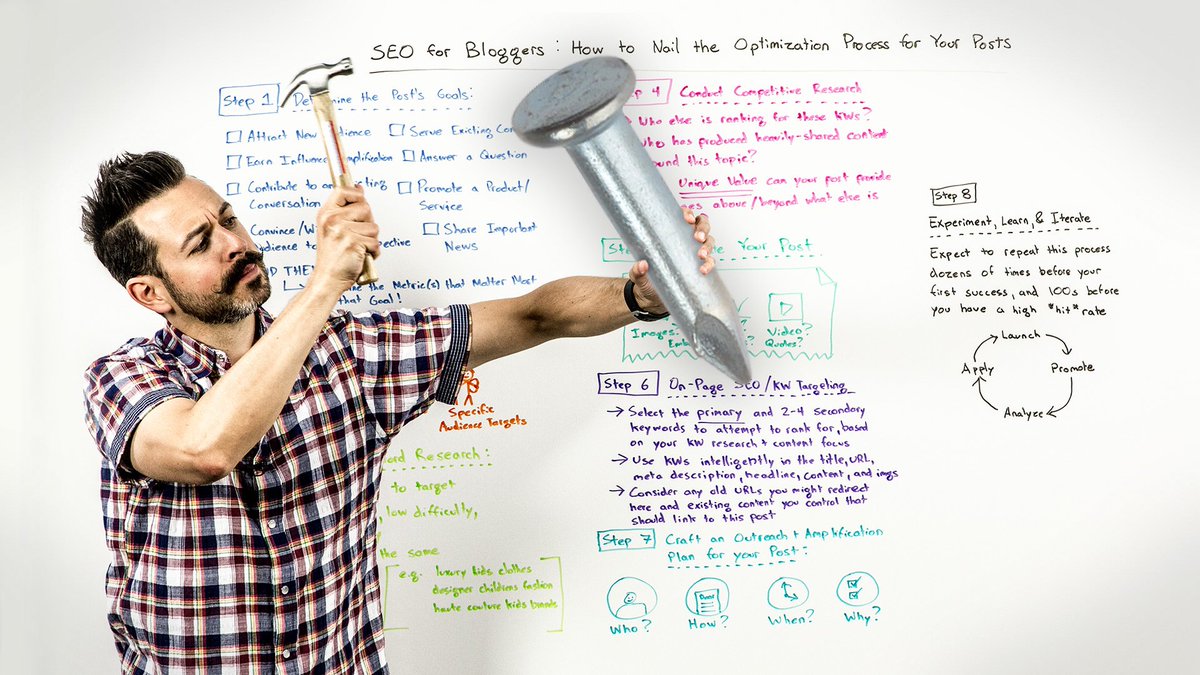 SEO for Bloggers: How to Nail the Optimization Process for Your Posts
Step 1
Determine the Post's Goals:
Attract New Audience
Serve Existing
Earn Influence Amplification
Answer a Question
Contribute to an Existing
Conversation
Promote a Product/
Service
Convince/
Audience to
Share Important
News
the Metric(s) that Matter Most
that Goal!
Specific
Audience Targets
Research:
to target
, low difficulty,
the same
e.g. luxury kids clothes
designer childrens fashion
haute couture kids brands
4
Conduct Competitive Research
Who else is ranking for these KWs?
who has produced heavily-shared content
this topic?
Unique Value can your post provide
above/beyond what else is
Your Post
Images?
Video?
Quotes?
Step 6
On-Page SEO/KW Targeting
→ Select the primary and 2-4 secondary
keywords to attempt to rank for, based
on your KW research + content focus
→ Use KWs intelligently in the title, URL,
meta description, headline, content, and imgs
→ Consider any old URLs you might redirect
here and existing content you control that
should link to this post
Step 7
Craft an Outreach + Amplification
Plan for your Post:
Who?
How?
When?
Why?
Step 8
Experiment, Learn, & Iterate
Expect to repeat this process
dozens of times before your
first success, and 100s before
you have a high *hit* rate
Launch
Promote
Analyze
Apply